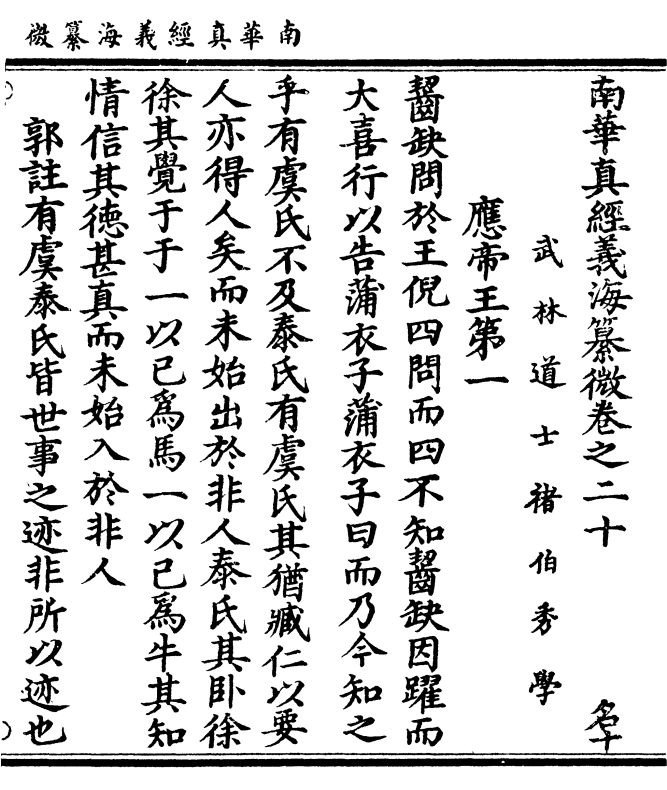 南華真經義海纂微
南華真經義海纂微卷之二十 名十
武林道士褚伯秀學
應帝王第一
齧缺問於王倪四問而四不知齧缺因躍而
大喜行以告蒲衣子蒲衣子曰而乃今知之
乎有虞氏不及泰氏有虞氏其猶臧仁以要
人亦得人矣而未始出於非人泰氏其卧徐
徐其覺于于一以己為馬一以己為牛其知
情信其德甚真而未始入於非人
郭註有虞泰氏皆世事之迹非所以迹也